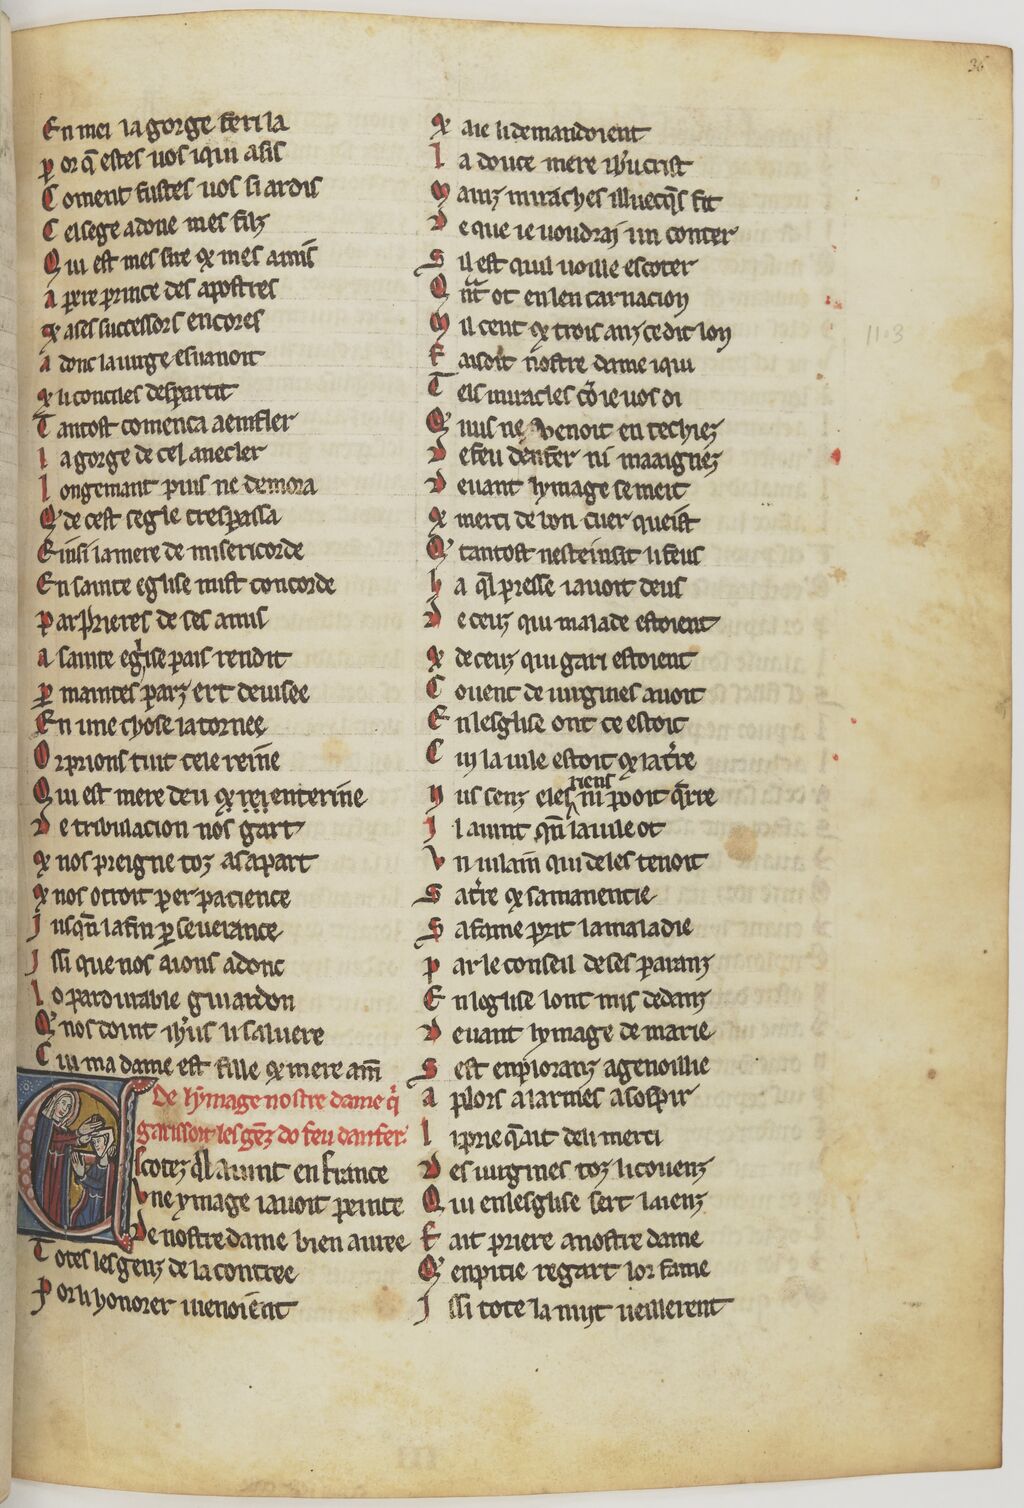 36
En mei la gorge feri la
p̲ or q̃ estes uos iqui asis
C oment fustes uos si ardis
C el sege a done mes filz
Q ui est mes sire ⁊ mes amis
a pere prince des apostres
⁊ a ses successors encores
a donc la uirge esuanoit
⁊ li conciles despartit
T antost comenca a emfler
l a gorge de cel anecler
l ongemant puis ne demora
Q' de cest segle trespassa
E iusi la mere de misericorde
En sainte eglise mist concorde
p ar prieres de ses amis
a sainte eglise pais rendit
p̲ maintes parz ert deuisee
En une chose la tornee
O r prions tuit cele reine
Qui est mere deu ⁊ enterine
D e tribulacion nos gart
⁊ nos preigne toz a sa part
⁊ nos otroit per pacience
J usqu'a la fin p̲seuerance
J ssi que nos aions adonc
l o pardurable guardon
Q' nos doint ihus li saluere
C ui ma dame est fille ⁊ mere am̅
De lymage nostre dame q'
garissoit les gẽz do feu danfer.
Escotez q̃l auint en france
Vne ymage i auoit peinte
De nostre dame bien auree
T otes les genz de la contree
P or li honorer i uenoient
⁊ aie li demandoient
l a douce mere ih'u crist
M ainz miracles illuecq̃s fit
D e que ie uoudrai un conter
S il est qui l uoille escoter
Q nt̃ ot en len carnacion
M il cent ⁊ trois anz ce dit lon
F aisoit nostre dame iqui
T els miracles cõ ie uos di
Q nus ne uenoit en techiez
D e feu denfer ni maaignez
D euant lymage se meit
⁊ merci de bon cuer queist
Q' tantost nesteinsit li feus
h a q̃l presse i auoit deus
D e ceuz qui malade estoient
⁊ de ceuz qui gari estoient
C ouent de uirgines auoit
E n lesglise ont ce estoit
C ui la uile estoit ⁊ la t're
N us senz eles riens ni pooit q̃rre
J l auint q̃n la uile ot
V n uilain qui de les tenoit
S a t're ⁊ sa manentie
S a fame prit la maladie
P ar le conseil de ses paranz
E n leglise lont mis dedanz
D euant lymage de marie
S est en prioranz agenoillie
a plors a larmes a sospir
l i prie q̃ ait deli merci
D es uirgines toz li couenz
Q ui en lesglise sert laienz
F ait priere a nostre dame
Q' en pitie regart lor fame
J ssi tote la nuyt ueillerent
11.3